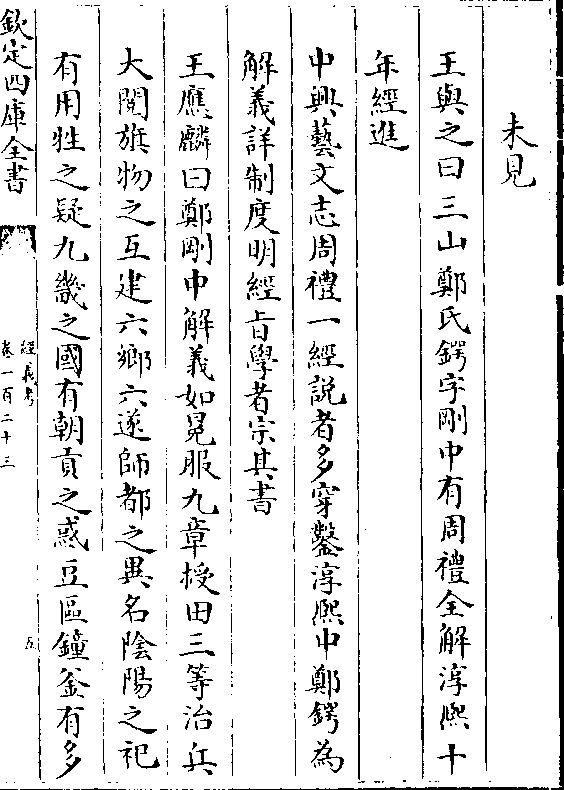 未見
王與之曰三山鄭氏鍔字剛中有周禮全解淳熙十
年經進
中興藝文志周禮一經說者多穿鑿淳熙中鄭鍔為
解義詳制度明經旨學者宗其書
王應麟曰鄭剛中解義如冕服九章授田三等治兵
大閱旗物之互建六鄉六遂師都之異名陰陽之祀
有用牲之疑九畿之國有朝貢之惑豆區鐘釜有多
欽定四庫全書
經義考
卷一百二十三
五